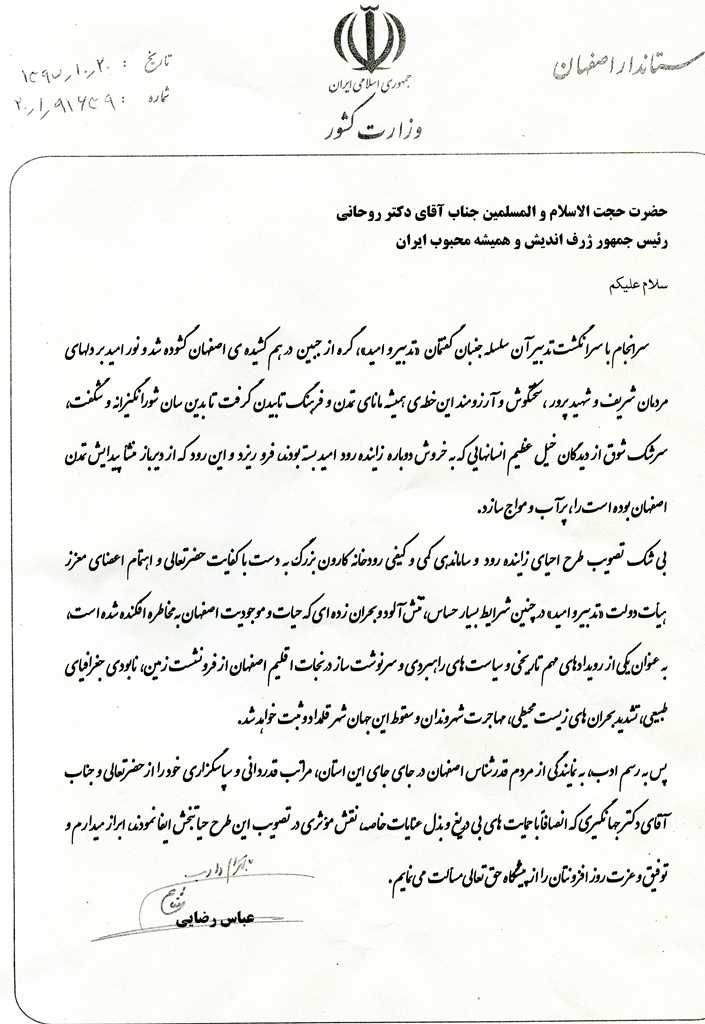 استاندار اصفهان
جمهوری اسلامی ایران
وزارت کشور
تاریخ : ۱۳۹۷/۱۰/۲۰
شماره : ۲۰/۱/۹۱۶۳۹
حضرت حجت الاسلام و المسلمین جناب آقای دکتر روحانی
رئیس جمهور ژرف اندیش و همیشه محبوب ایران
سلام علیکم
سرانجام با سرانگشت تدبیر آن سلسله جنبان گفتمان «تدبیر و امید»، گره از جبین در هم کشیده ی اصفهان گشوده شد و نور امید بر دلهای
مردمان شریف و شهید پرور، سختکوش و آرزومند این خطه ی همیشه مانای تمدن و فرهنگ تابیدن گرفت تا بدین سان شورانگیزانه و شگفت،
سرشک شوق از دیدگان خیل عظیم انسانهایی که به خروش دوباره زاینده رود امید بسته بودند، فرو ریزد و این رود که از دیرباز منشا پیدایش تمدن
اصفهان بوده است را، پرآب و مواج سازد.
بی شک تصویب طرح احیای زاینده رود و ساماندهی کمی و کیفی رودخانه کارون بزرگ به دست با کفایت حضرتعالی و اهتمام اعضای معزز
هیأت دولت «تدبیر و امید» در چنین شرایط بسیار حساس، تنش آلود و بحران زده ای که حیات و موجودیت اصفهان به مخاطره افکنده شده است،
به عنوان یکی از رویدادهای مهم تاریخی و سیاست های راهبردی و سرنوشت ساز در نجات اقلیم اصفهان از فرونشست زمین، نابودی جغرافیای
طبیعی، تشدید بحران های زیست محیطی، مهاجرت شهروندان و سقوط این جهان شهر قلمداد و ثبت خواهد شد.
پس به رسم ادب، به نمایندگی از مردم قدرشناس اصفهان در جای جای این استان، مراتب قدردانی و سپاسگزاری خود را از حضرتعالی و جناب
آقای دکتر جهانگیری که انصافاً با حمایت های بی دریغ و بذل عنایات خاصه، نقش مؤثری در تصویب این طرح حیاتبخش ایفا نمودند، ابراز میدارم و
توفیق و عزت روز افزونتان را از پیشگاه حق تعالی مسألت می نمایم.
عباس رضایی